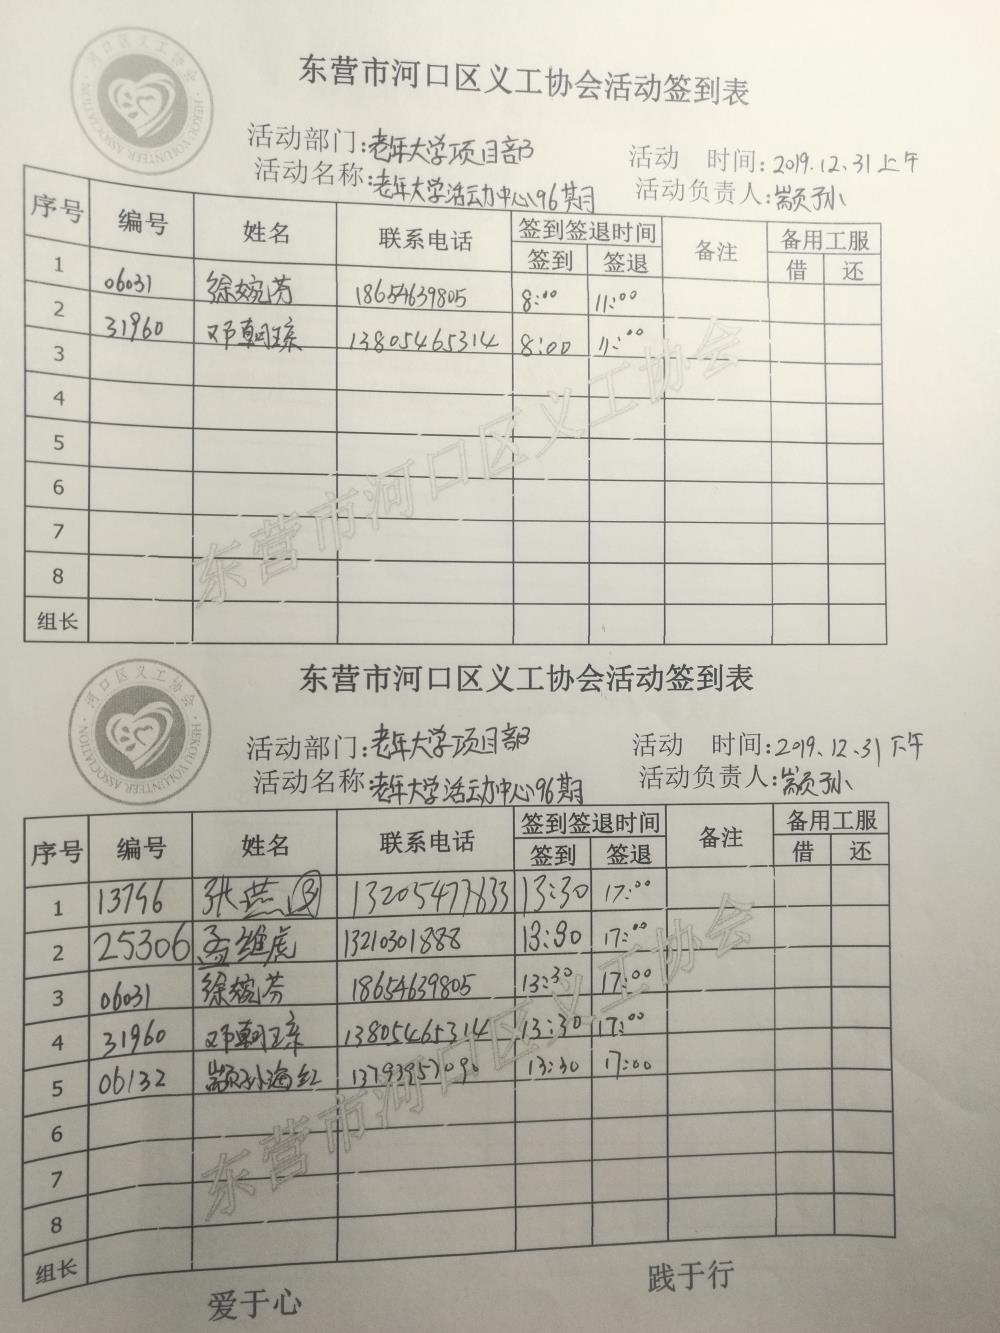 东营市河口区义工协会活动签到表
河口区义工协会
HEKOU VOLUNTEER ASSOCIATION
活动部门:老年大学项目部 活动 时间:2019.12.31上午
活动名称:老年大学活动中心96期 活动负责人:颛孙
序号 编号 姓名 联系电话 签到签退时间 备注 备用工服
签到 签退 借 还
1 06031 徐婉芬 18654639805 8:00 11:00
2 31960 邓朝琼 13805465314 8:00 11:00
3
4
5
6
7
8
组长
东营市河口区义工协会
东营市河口区义工协会活动签到表
河口区义工协会
HEKOU VOLUNTEER ASSOCIATION
活动部门:老年大学项目部 活动 时间:2019.12.31下午
活动名称:老年大学活动中心96期 活动负责人:颛孙
序号 编号 姓名 联系电话 签到签退时间 备注 备用工服
签到 签退 借 还
1 13796 张燕③ 13205477633 13:30 17:00
2 25306 孟维虎 13210301888 13:30 17:00
3 06031 徐婉芬 18654639805 13:30 17:00
4 31960 邓朝琼 13805465314 13:30 17:00
5 06132 颛孙海红 13793957090 13:30 17:00
6
7
8
组长
东营市河口区义工协会
爱于心 践于行